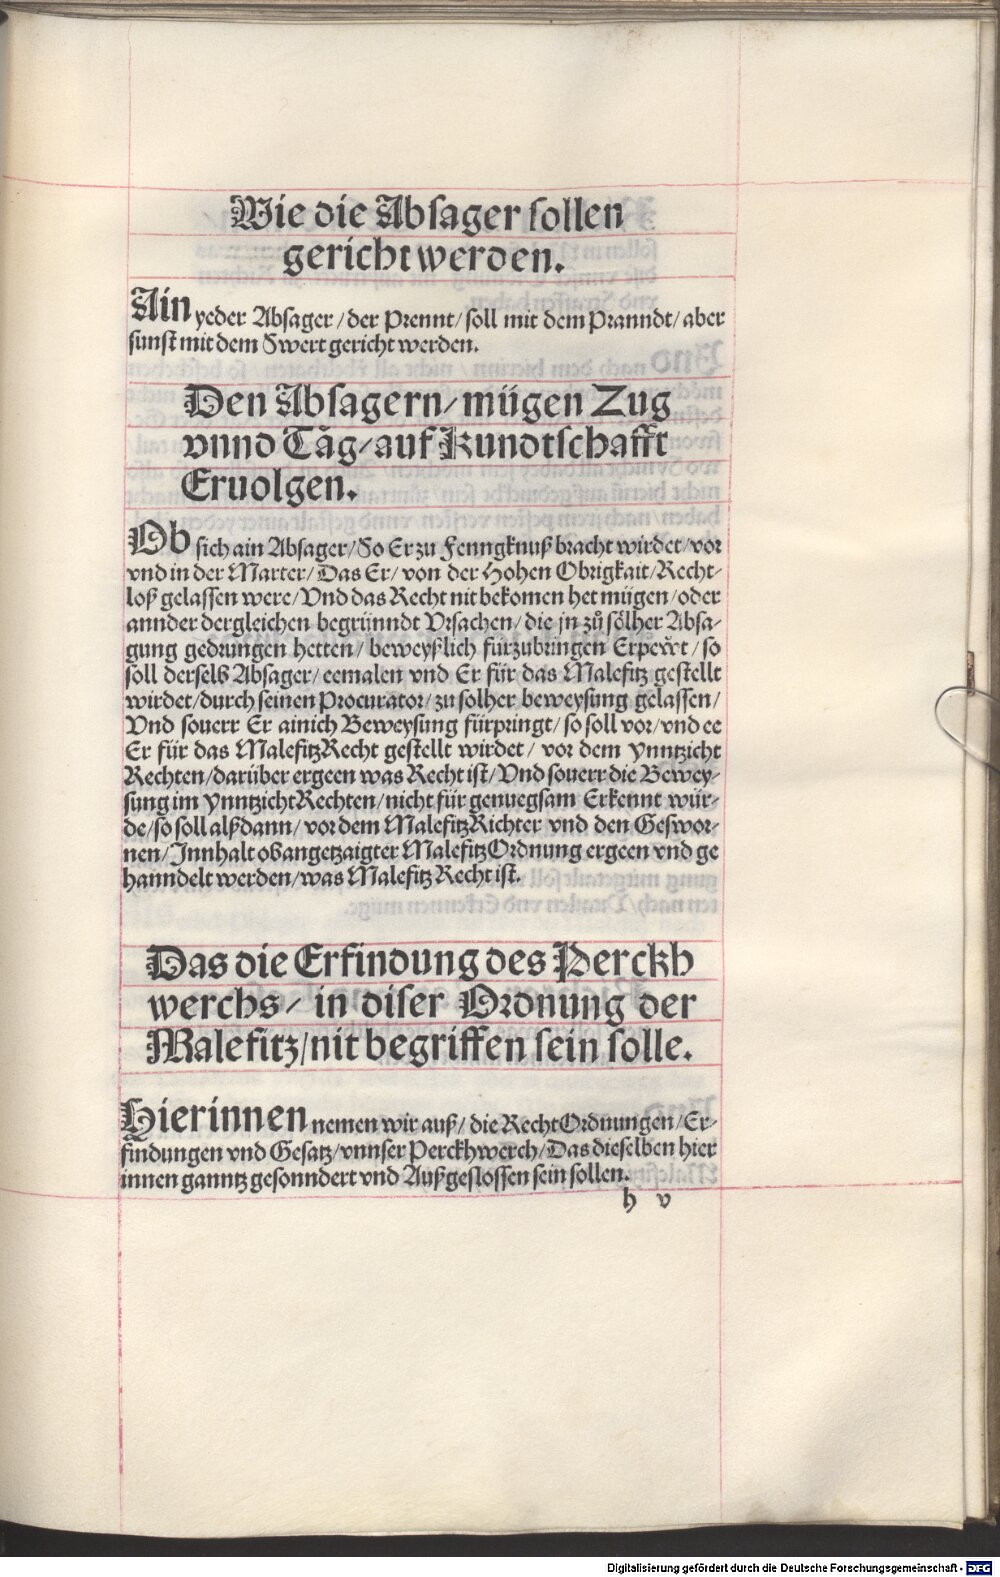 Wie die Absager sollen
gericht werden.
Ain yeder Absager / der Prennt / soll mit dem Pranndt / aber
sunst mit dem Swert gericht werden.
Den Absagern / mügen Zug
vnnd Tåg / auf Kundtschafft
Eruolgen.
Ob sich ain Absager / So Er zu Fenngknuß bracht wirdet / vor
vnd in der Marter / Das Er / von der Hohen Obrigkait / Recht-
loß gelassen were / Vnd das Recht nit bekomen het mügen / oder
annder dergleichen begrünndt Vrsachen / die jn zů sölher Absa-
gung gedrungen hetten / beweyßlich fürzubringen Erpewt / so
soll derselb Absager / eemalen vnd Er für das Malefitz gestellt
wirdet / durch seinen Procurator / zu solher beweysung gelassen /
Vnd souerr Er ainich Beweysung fürpringt / so soll vor / vnd ee
Er für das MalefitzRecht gestellt wirdet / vor dem ynntzicht
Rechten / darüber ergeen was Recht ist / Vnd souerr die Bewey-
sung im ynntzichtRechten / nicht für genuegsam Erkennt wür-
de / so soll alßdann / vor dem MalefitzRichter vnd den Geswor-
nen / Innhalt obangetzaigter MalefitzOrdnung ergeen vnd ge
hanndelt werden / was MalefitzRecht ist.
Das die Erfindung des Perckh
werchs / in diser Ordnung der
Malefitz / nit begriffen sein solle.
Hierinnen nemen wir auß / die RechtOrdnungen / Er-
findungen vnd Gesatz / vnnser Perckhwerch / Das dieselben hier
innen ganntz gesonndert vnd Außgeslossen sein sollen.
h v
Digitalisierung gefördert durch die Deutsche Forschungsgemeinschaft - DFG